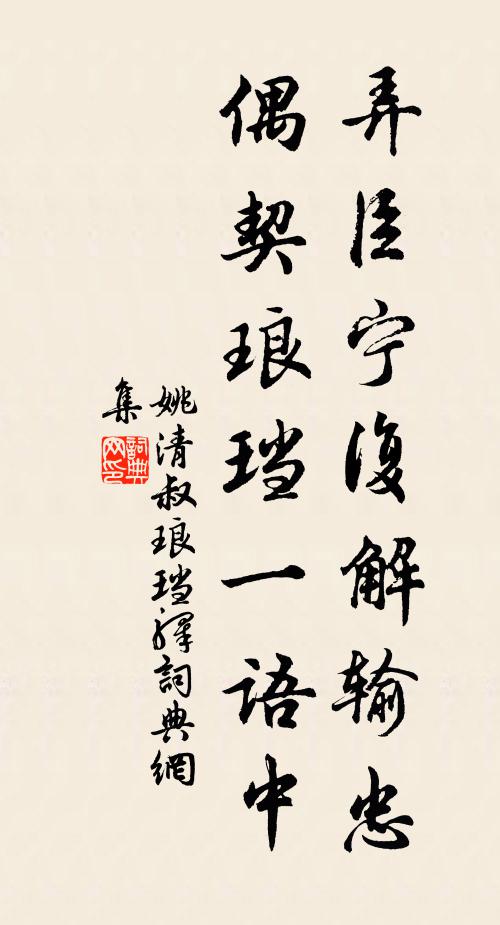 弄臣宁復解输忠
偶契琅珰一语中
姚清叔琅珰驿詞典網
集
詞典
网印